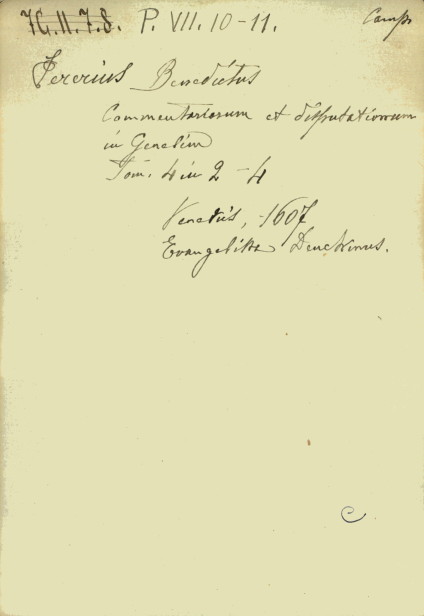 7G.II.7.8. P. VII. 10-11. Comp.
Pererius Benedictus
Commentariorum et disputationum
in Genesim
Tom. 4 in 2 - 4
Venetiis, 1607
Evangelista Deuchinus.
C